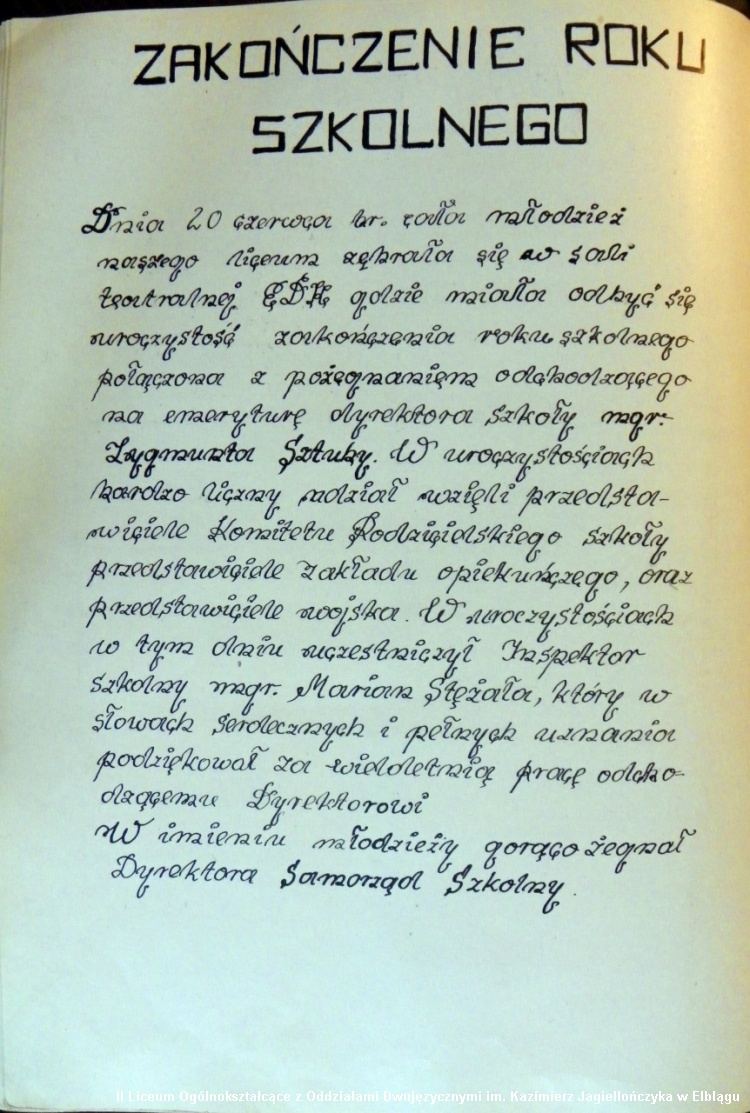 ZAKOŃCZENIE ROKU
SZKOLNEGO
Dnia 20 czerwca br. cała młodzież
naszego liceum zebrała się w sali
teatralnej EDK gdzie miała odbyć się
uroczystość zakończenia roku szkolnego
połączona z pożegnaniem odchodzącego
na emeryturę dyrektora szkoły mgr.
Zygmunta Sztuby. W uroczystościach
bardzo liczny udział wzięli przedsta-
wiciele Komitetu Rodzicielskiego szkoły
przedstawiciele zakładu opiekuńczego, oraz
przedstawiciele wojska. W uroczystościach
w tym dniu uczestniczył Inspektor
Szkolny mgr. Marian Stężała, który w
słowach serdecznych i pełnych uznania
podziękował za wieloletnią pracę odcho-
dzącemu Dyrektorowi
W imieniu młodzieży gorąco żegnał
Dyrektora Samorząd Szkolny.
II Liceum Ogólnokształcące z Oddziałami Dwujęzycznymi im. Kazimierz Jagiellończyka w Elblągu